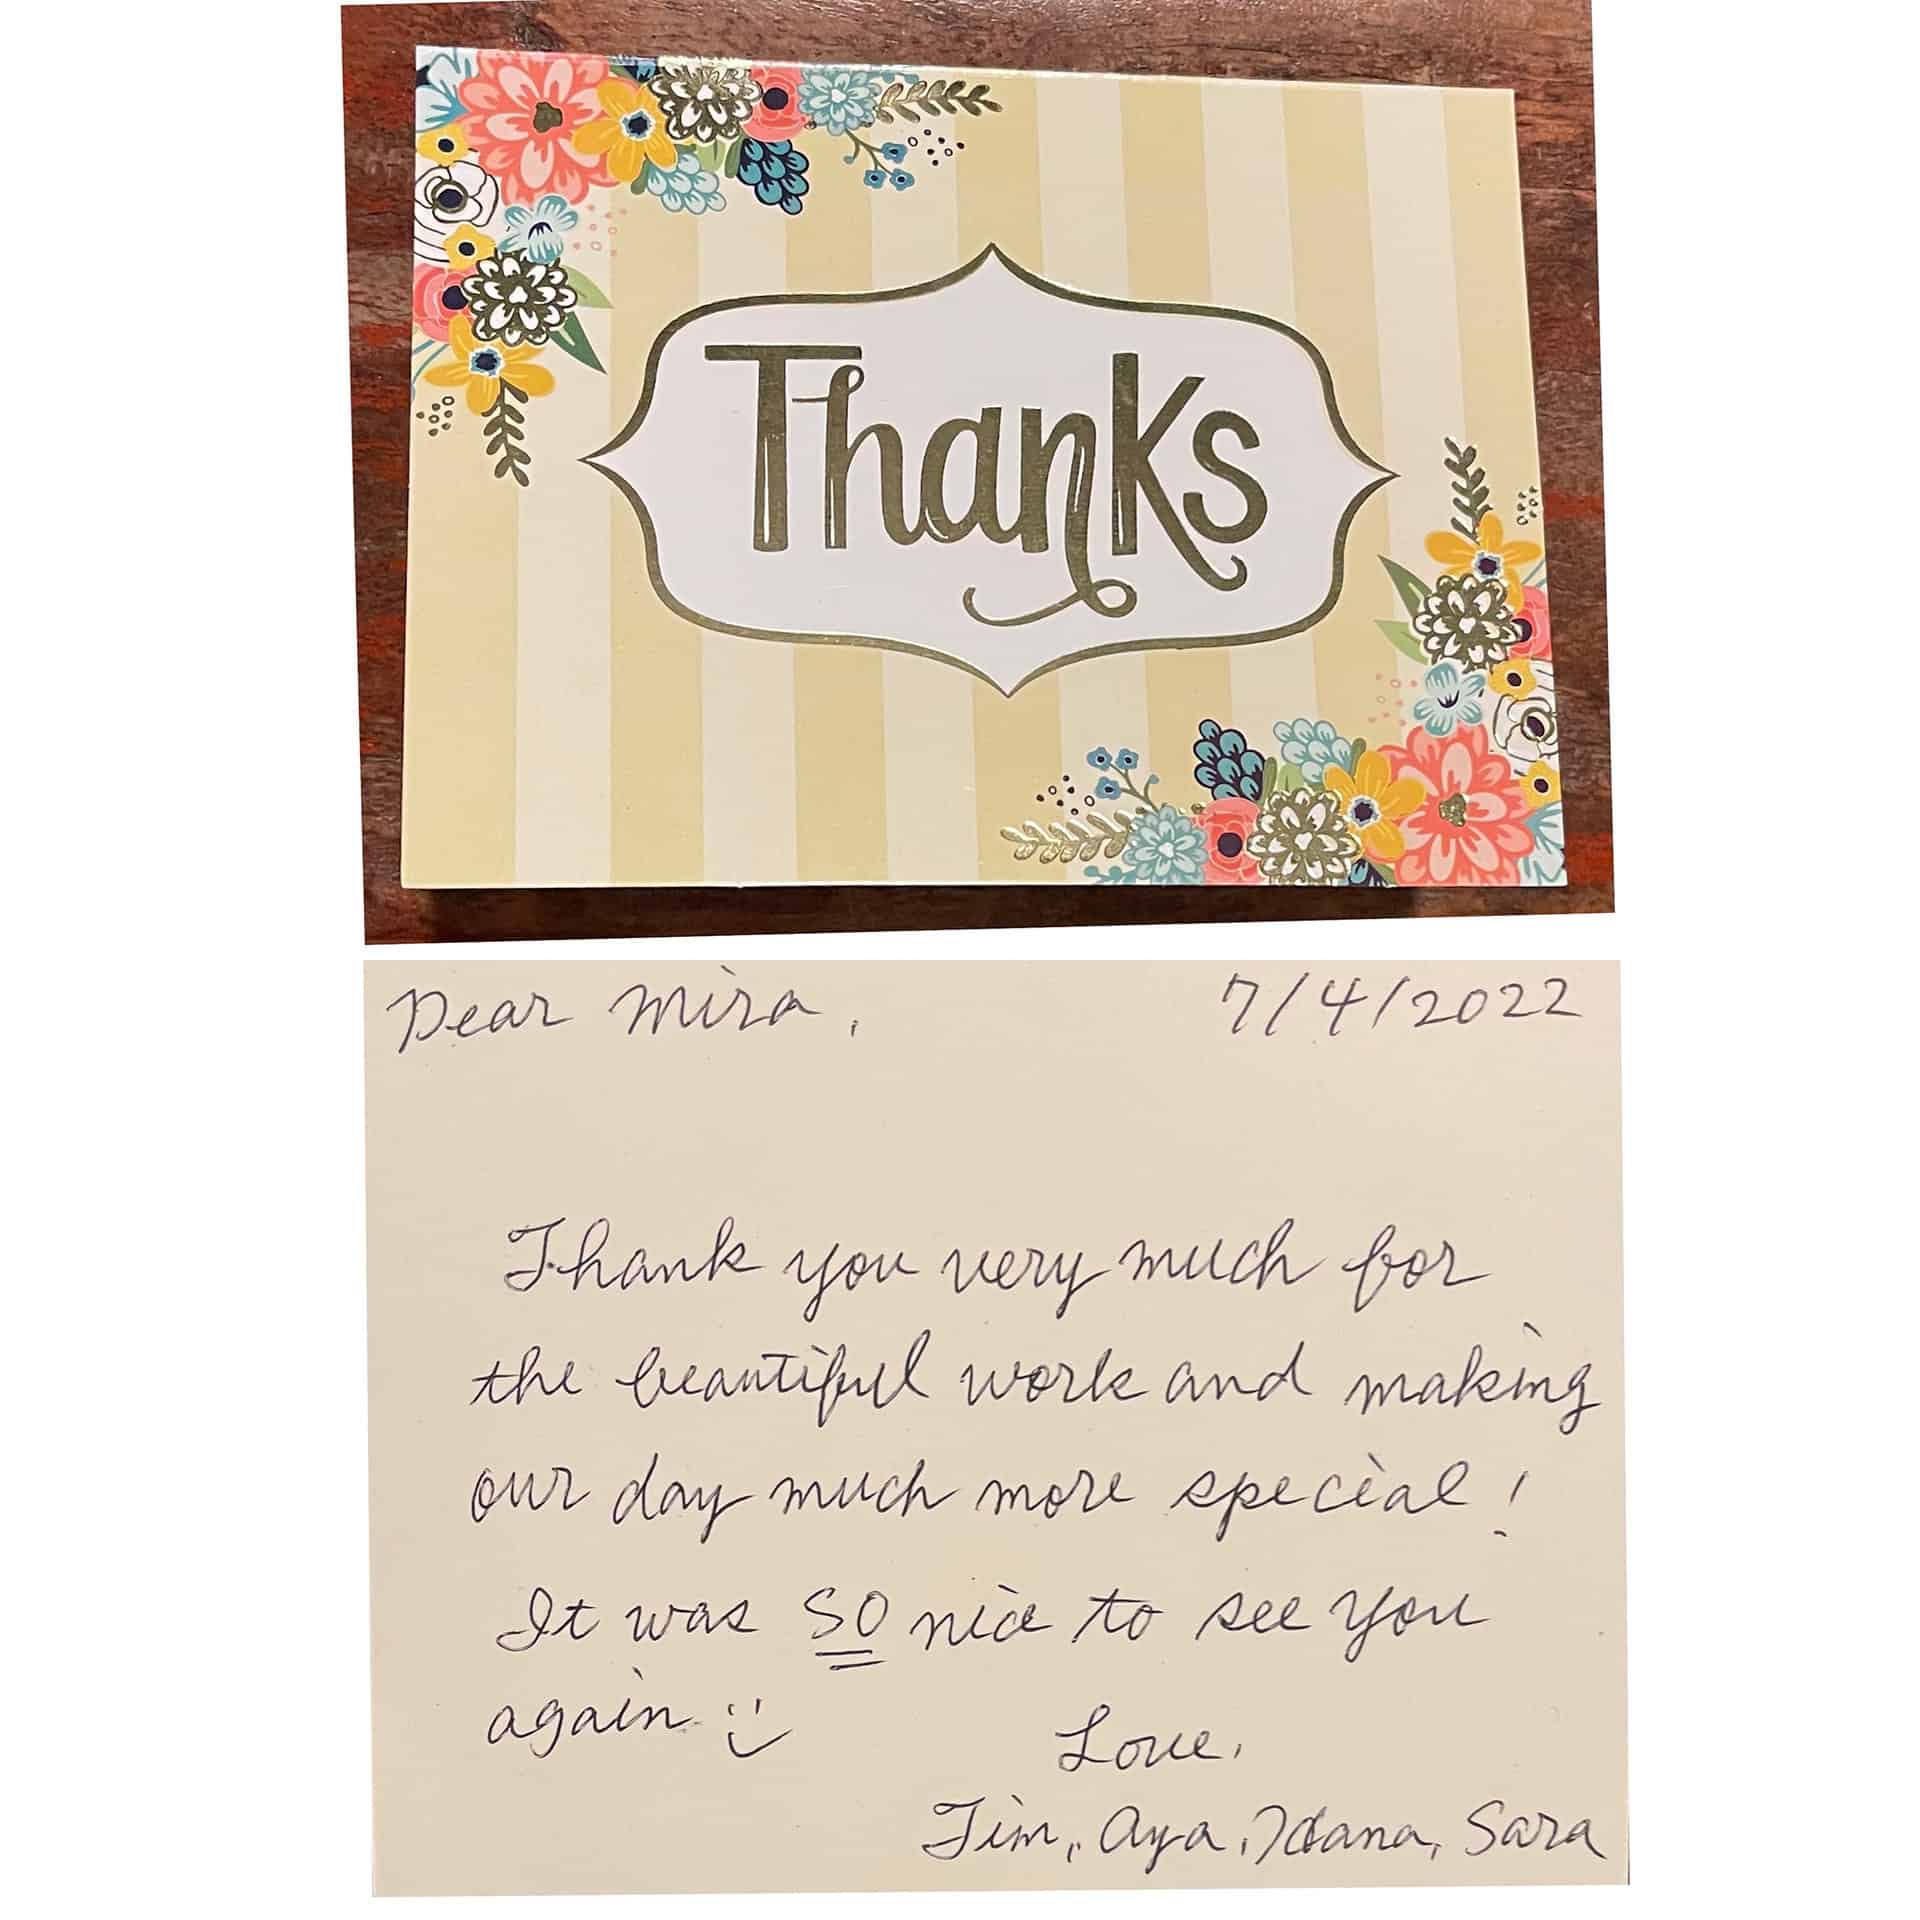 Thanks
Dear Mira, 7/4/2022
Thank you very much for
the beautiful work and making
our day much more special!
It was SO nice to see you
again :)
Love,
Tim, Aya, Hana, Sara